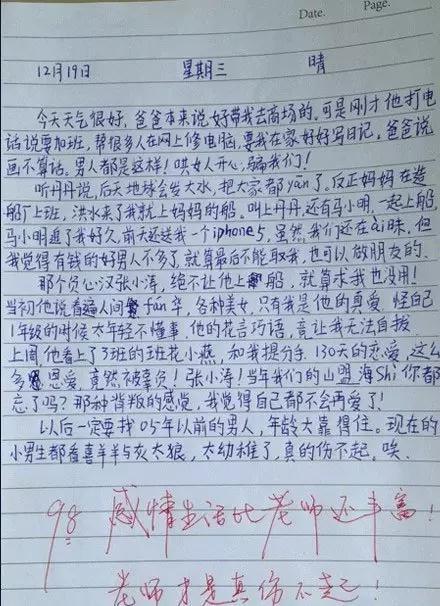 Date.    Page.
12月19日    星期三    晴
今天天气很好,爸爸本来说好带我去商场的,可是刚才他打电
话说要加班,帮很多人在网上修电脑,要我在家好好写日记,爸爸说
画不算话。男人都是这样!哄女人开心,骗我们!
听丹丹说,后天地球会发大水,把大家都yān了。反正妈妈在造
船厂上班,洪水来了我就上妈妈的船。叫上丹丹,还有马小明,一起上船,
马小明追了我好久,前天还送我一个iphone5,虽然我们还在ai昧,但
我觉得有钱的好男人不多了,就算最后不能取我,也可以做朋友的。
那个负心汉张小涛,绝不让他上船,就算求我也没用!
当初他说看遍人间fán华,各种美女,只有我是他的真爱,怪自己
1年级的时候太年轻不懂事,他的花言巧语,竟让我无法自拔
上周他看上了3班的班花小燕,和我提分手,130天的恋爱,这么
多恩爱,竟然被辜负!张小涛!当年我们的山盟海Shi你都
忘了吗?那种背叛的感觉,我觉得自己都不会再爱了!
以后一定要找05年以前的男人,年龄大靠得住。现在的
小男生都看喜羊羊与灰太狼,太幼稚了,真的伤不起,唉、
98 感情生活比老师还丰富!
老师才是真伤不起!